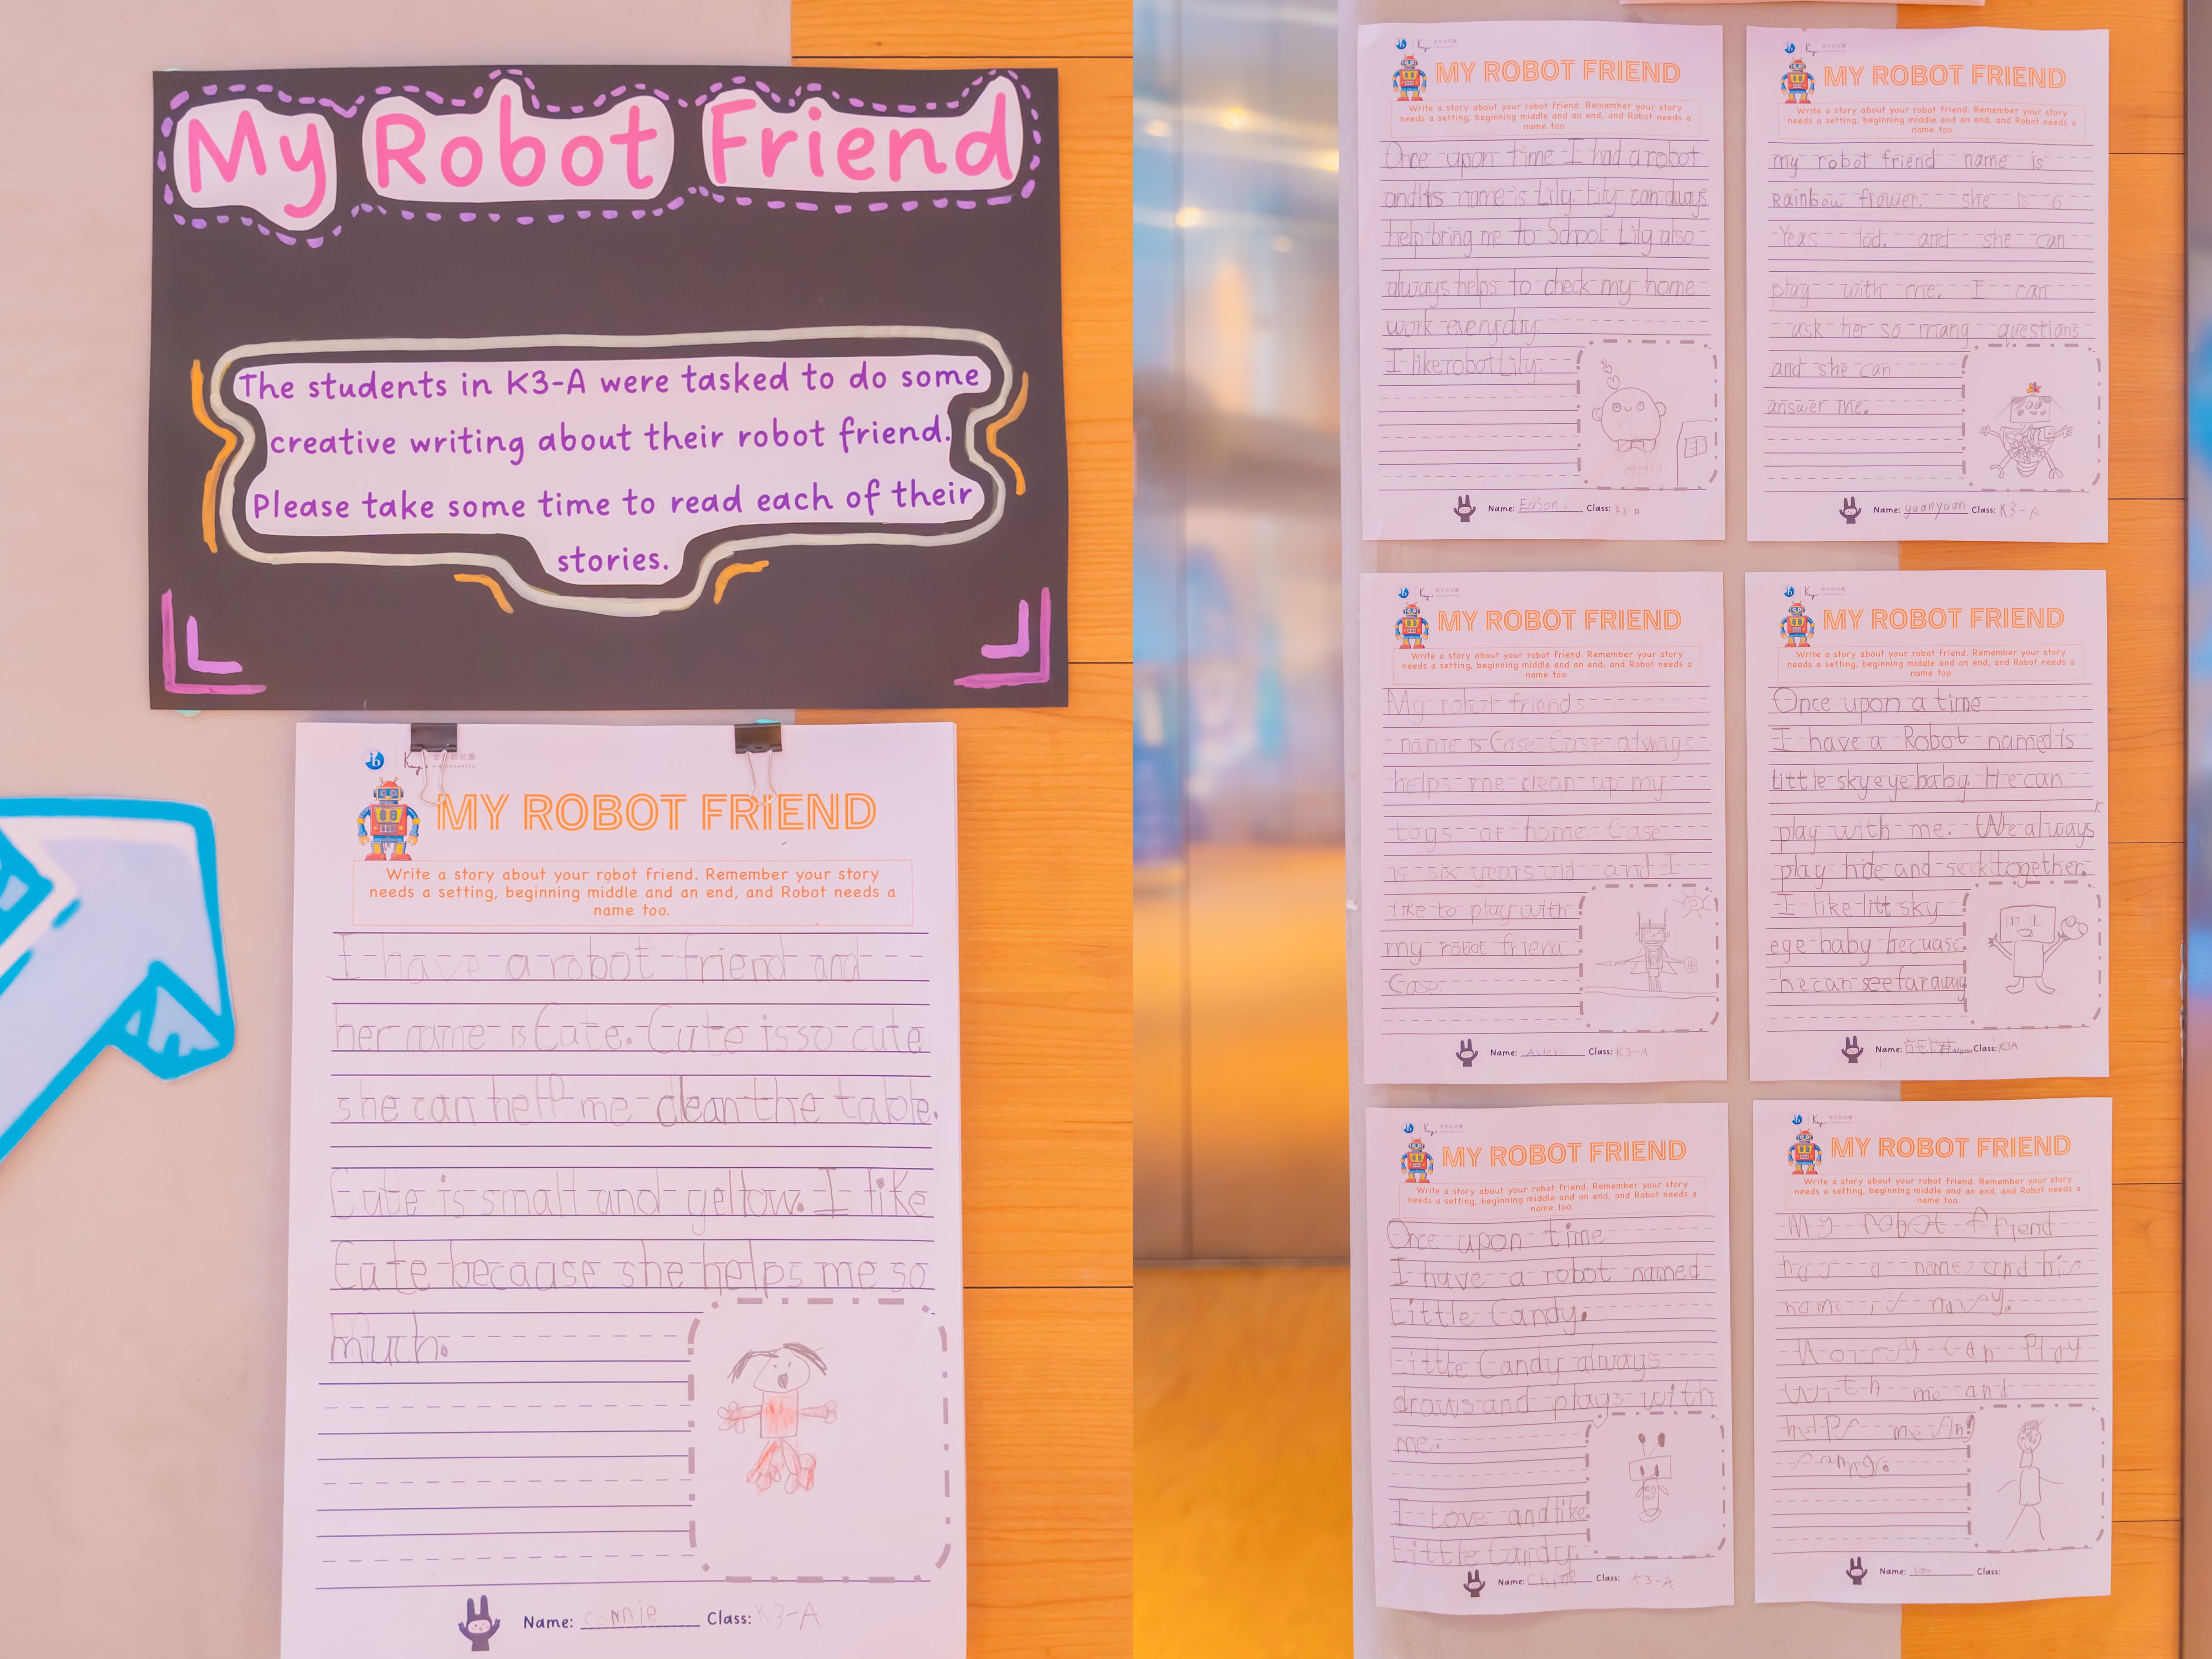 My Robot Friend
The students in K3-A were tasked to do some
creative writing about their robot friend.
Please take some time to read each of their
stories.
MY ROBOT FRIEND
Write a story about your robot friend. Remember your story
needs a setting, beginning middle and an end, and Robot needs a
name too.
I have a robot friend and
her name is Cute. Cute is so cute
she can help me clean the table.
Cute is small and yellow. I like
Cute because she helps me so
much.
Name: connie Class: K3-A
MY ROBOT FRIEND
Write a story about your robot friend. Remember your story
needs a setting, beginning middle and an end, and Robot needs a
name too.
Once upon time I had a robot
and his name is Lily. Lily can always
help bring me to School. Lily also
always helps to check my home
work everyday.
I like robot Lily.
Name: Edison. Class: K3-A
MY ROBOT FRIEND
Write a story about your robot friend. Remember your story
needs a setting, beginning middle and an end, and Robot needs a
name too.
my robot friend name is
Rainbow flower. she is 6
Yeas lod. and she can
play with me. I can
ask her so many questions
and she can
answer me.
Name: yuanyuan Class: K3-A
MY ROBOT FRIEND
Write a story about your robot friend. Remember your story
needs a setting, beginning middle and an end, and Robot needs a
name too.
My robot friends
name is Case Case always
helps me clean up my
toys at home Case
is six years old and I
like to play with
my robot friend
Case.
Name: Class: K3-A
MY ROBOT FRIEND
Write a story about your robot friend. Remember your story
needs a setting, beginning middle and an end, and Robot needs a
name too.
Once upon a time
I have a Robot named is
little skyeye baby. He can
play with me. We always
play hide and seek together.
I like litt sky
eye baby becuase
he can see far away
Name: Class: K3A
MY ROBOT FRIEND
Write a story about your robot friend. Remember your story
needs a setting, beginning middle and an end, and Robot needs a
name too.
Once upon time
I have a robot named
Little Candy.
Little Candy always
draws and plays with
me.
I Love and like
Little Candy.
Name: Class: K3-A
MY ROBOT FRIEND
Write a story about your robot friend. Remember your story
needs a setting, beginning middle and an end, and Robot needs a
name too.
My robot friend
has a name and his
name is noisy.
Noisy can Play
with me and
helps me sing
songs.
Name: Class: